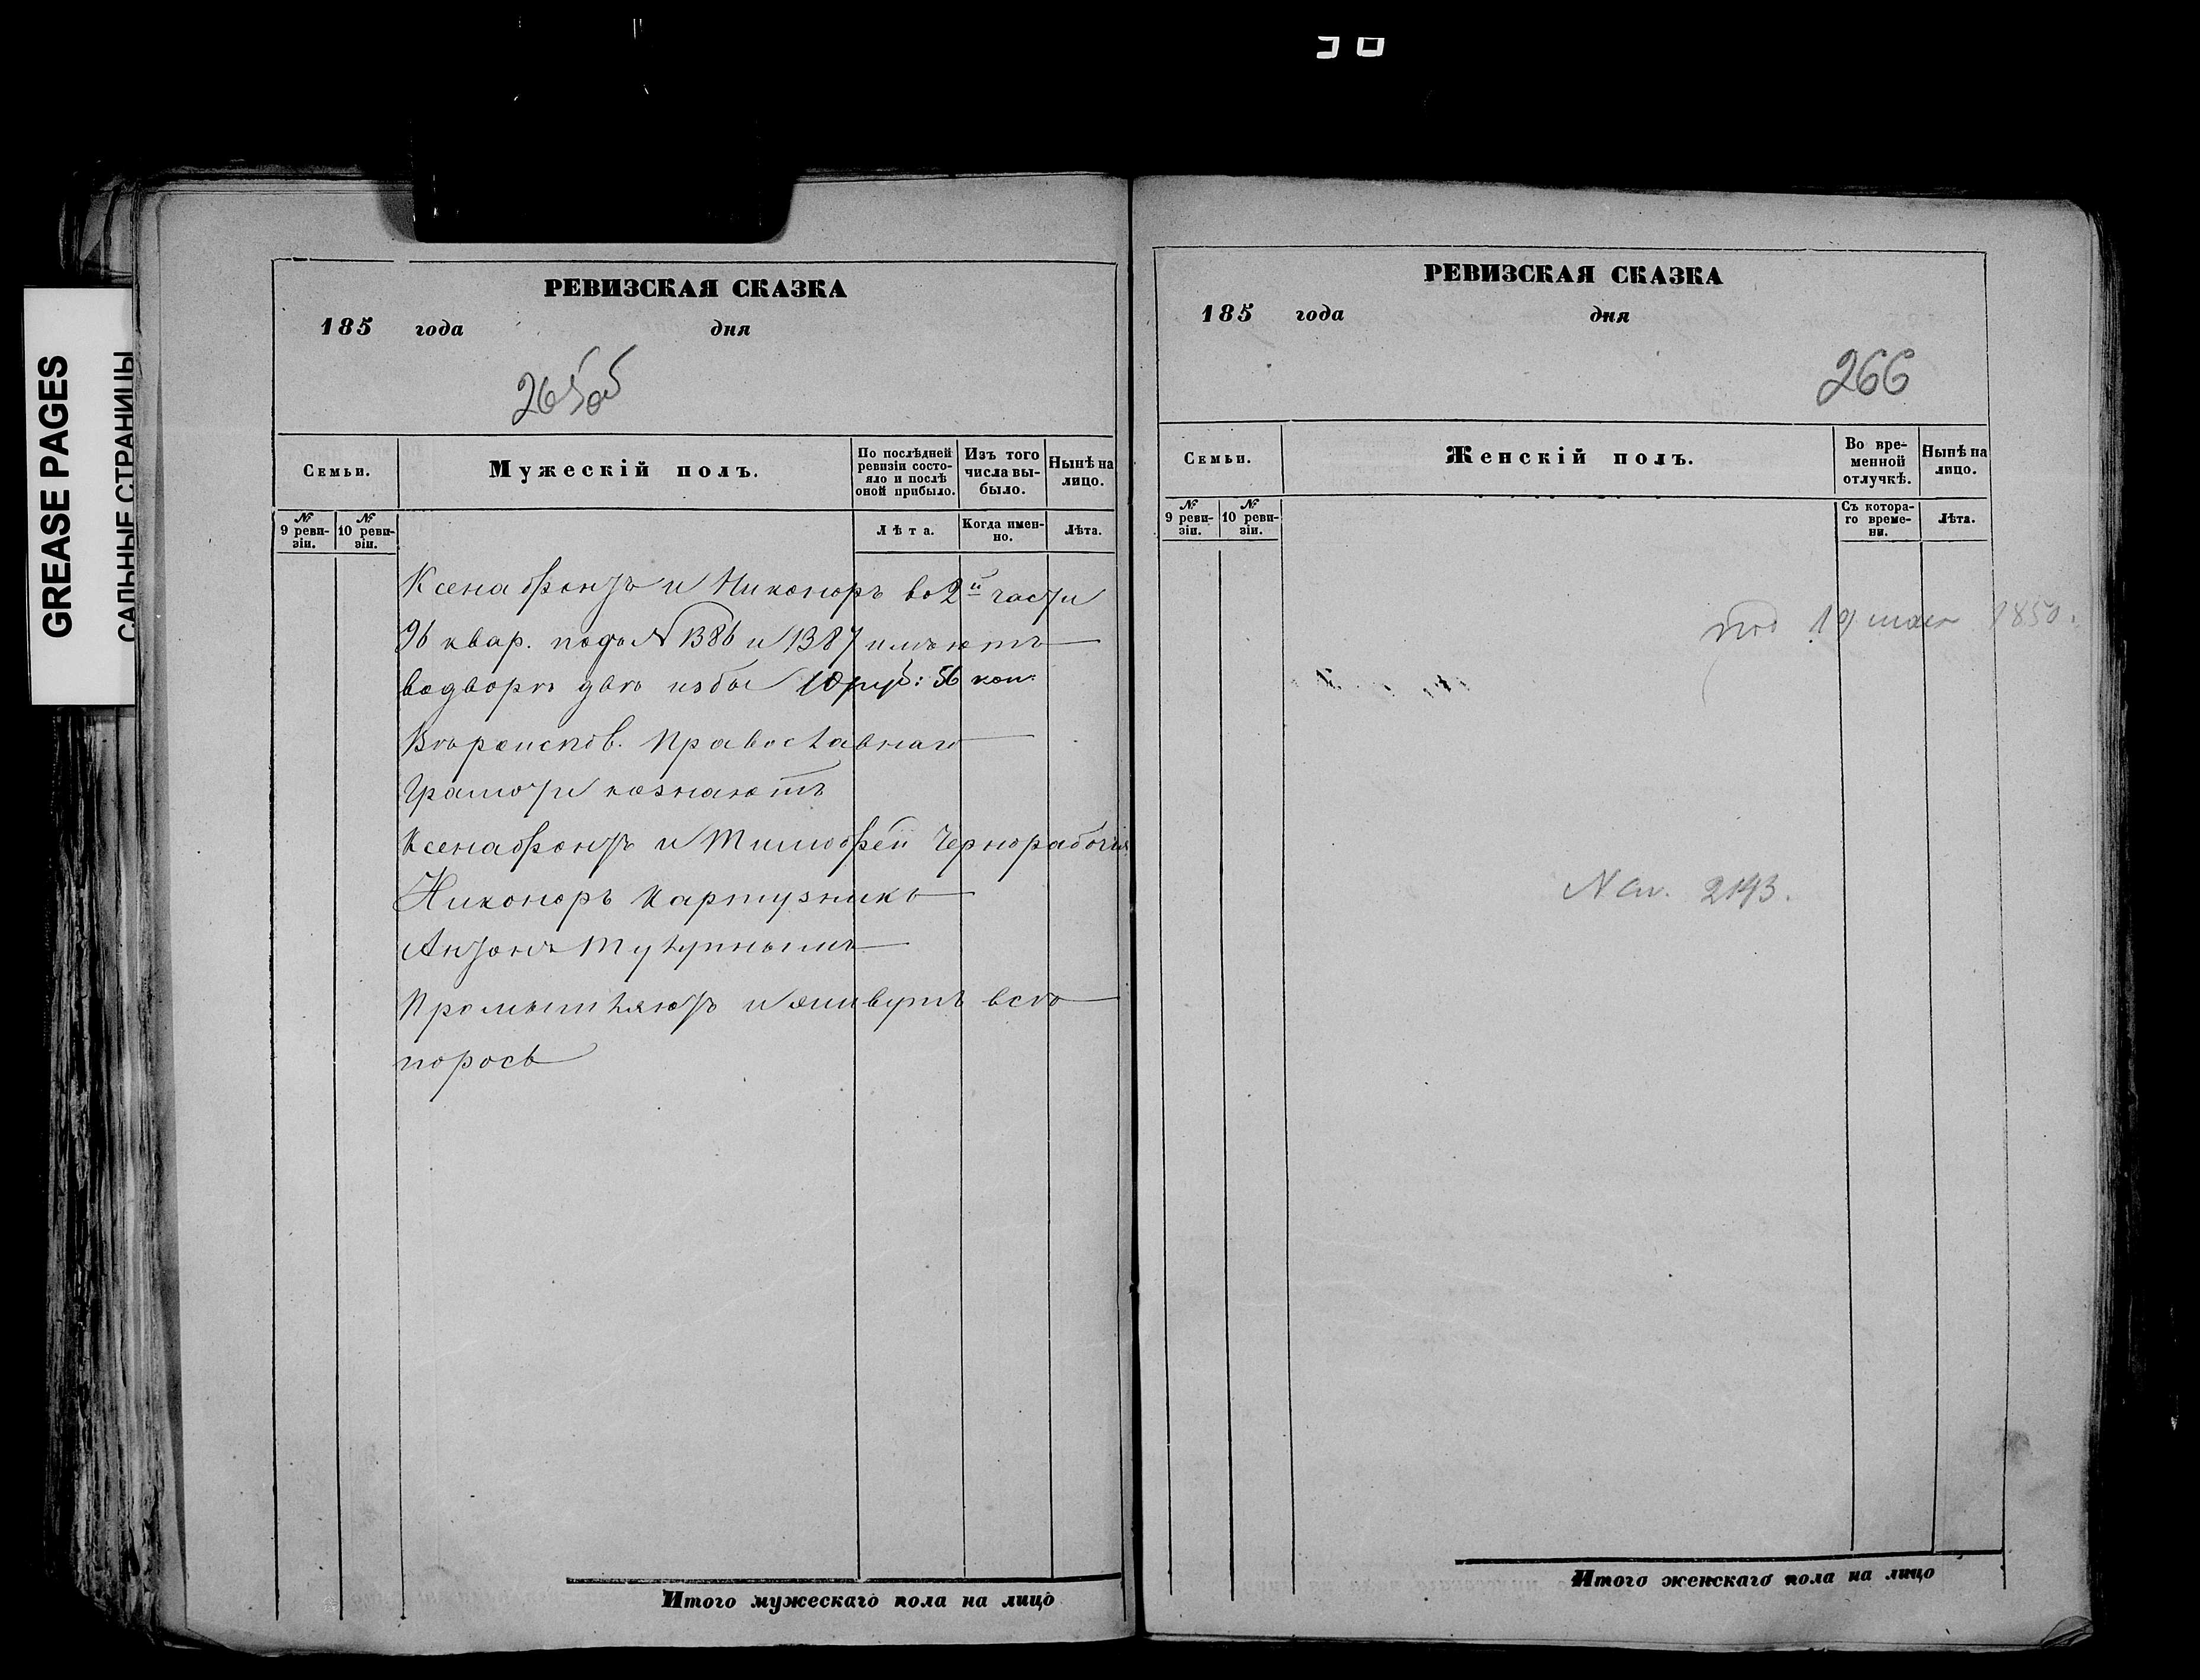 GREASE PAGES
САЛЬНЫЕ СТРАНИЦЫ
РЕВИЗСКАЯ СКАЗКА
185 года дня
265об
Семьи.
Мужескій полъ.
По послѣдней ревизіи состояло и послѣ оной прибыло.
Изъ того числа выбыло.
Нынѣ на лицо.
№ 9 ревизіи.
№ 10 ревизіи.
Лѣта.
Когда именно.
Лѣта.
Ксенафонтъ и Никоноръ во 2й части
96 квар. подъ № 1386 и 1387 имѣютъ
водворѣ двѣ избы 10 руб: 56 коп.
Вѣроиспов. Православнаго
Грамоти незнаютъ
Ксенафонтъ и Тимофей Чернорабочія
Никоноръ Картузникъ
Антонъ
Промышляютъ и живутъ всѣ
порось
Итого мужескаго пола на лицо
РЕВИЗСКАЯ СКАЗКА
185 года дня
266
Семьи.
Женскій полъ.
Во временной отлучкѣ.
Нынѣ на лицо.
№ 9 ревизіи.
№ 10 ревизіи.
Съ котораго времени.
Лѣта.
19 мая 1850.
2193.
Итого женскаго пола на лицо